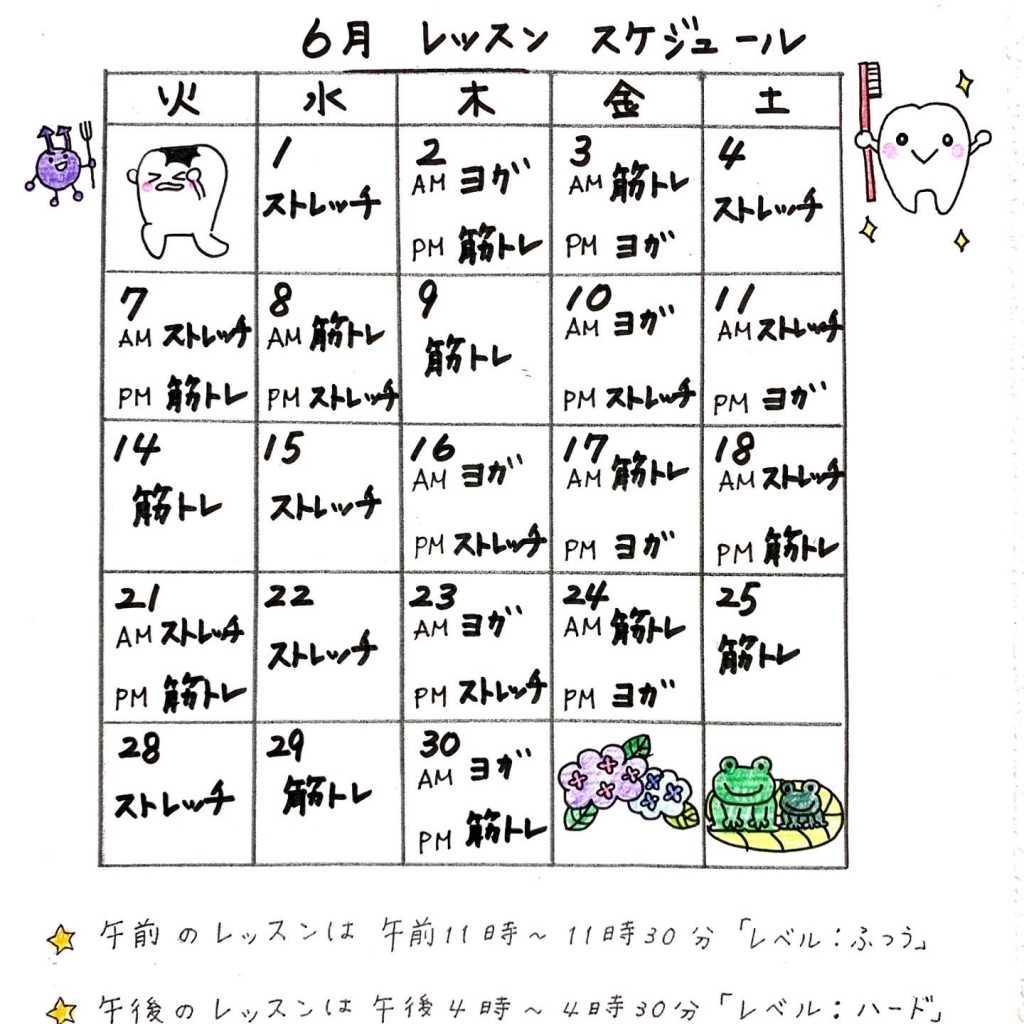 6月 レッスン スケジュール
火 水 木 金 土
1 ストレッチ
2 AM ヨガ PM 筋トレ
3 AM 筋トレ PM ヨガ
4 ストレッチ
7 AM ストレッチ PM 筋トレ
8 AM 筋トレ PM ストレッチ
9 筋トレ
10 AM ヨガ PM ストレッチ
11 AM ストレッチ PM ヨガ
14 筋トレ
15 ストレッチ
16 AM ヨガ PM ストレッチ
17 AM 筋トレ PM ヨガ
18 AM ストレッチ PM 筋トレ
21 AM ストレッチ PM 筋トレ
22 ストレッチ
23 AM ヨガ PM ストレッチ
24 AM 筋トレ PM ヨガ
25 筋トレ
28 ストレッチ
29 筋トレ
30 AM ヨガ PM 筋トレ
午前のレッスンは 午前11時〜11時30分「レベル:ふつう」
午後のレッスンは 午後4時〜4時30分「レベル:ハード」